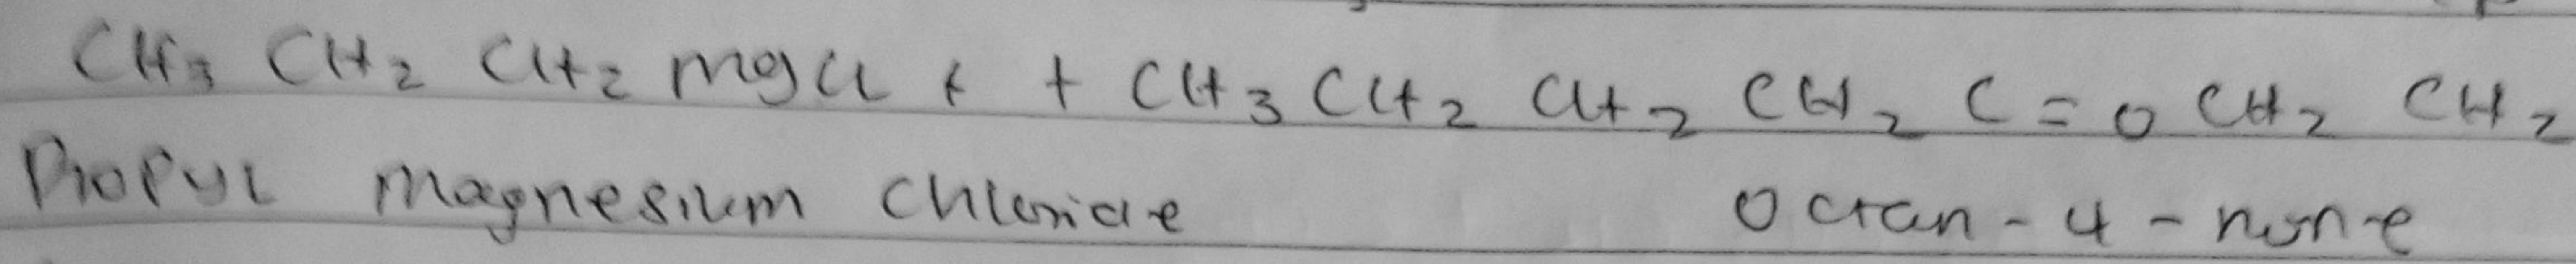 CH3 CH2 CH2 mgcl + + CH3 CH2 CH2 CH2 C=O CH2 CH2
Propyl magnesium chloride Octan-4-none